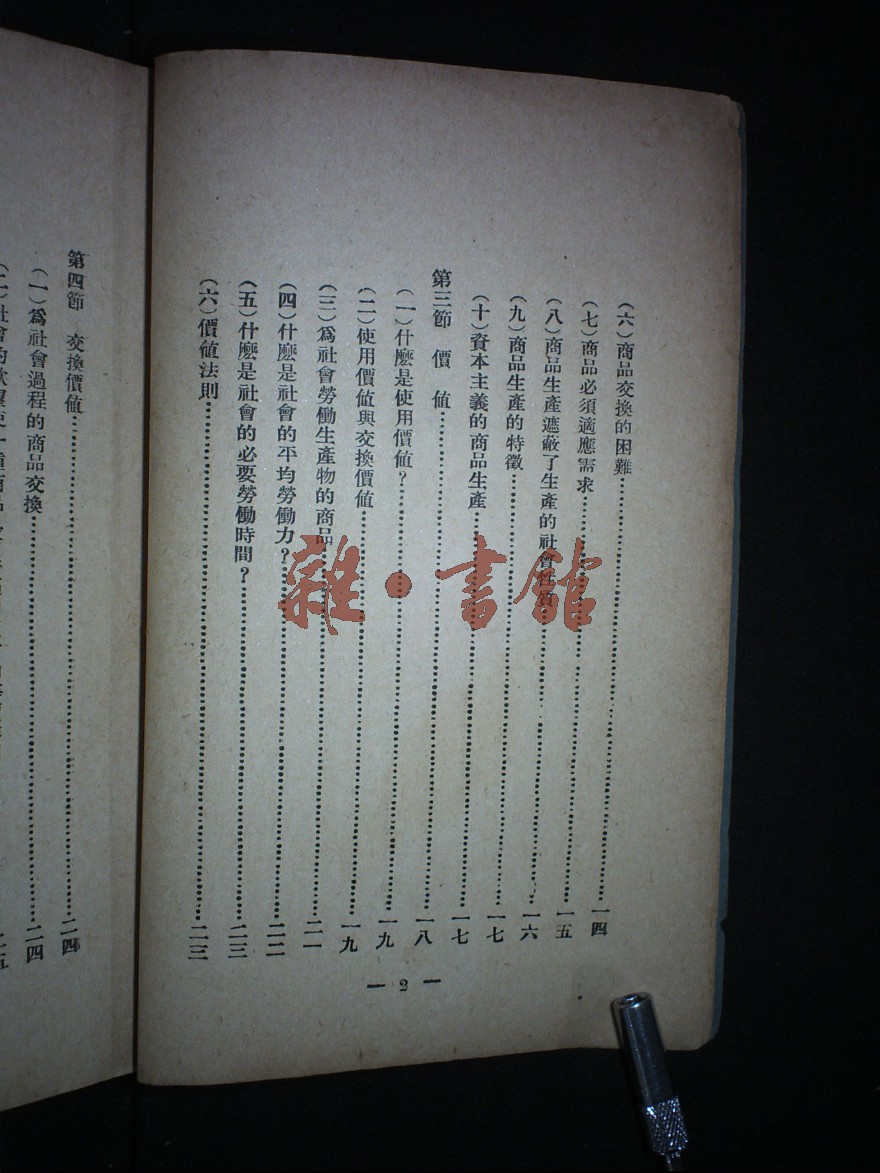 （六）商品交換的困難……一四
（七）商品必須適應需求……一五
（八）商品生產遮蔽了生產的社會性質……一六
（九）商品生產的特徵……一七
（十）資本主義的商品生產……一七
第三節　價　値……一八
（一）什麽是使用價値？……一九
（二）使用價値與交換價値……一九
（三）爲社會勞働生產物的商品……二一
（四）什麽是社會的平均勞働力？……二二
（五）什麽是社會的必要勞働時間？……二三
（六）價値法則……二三
— 2 —
第四節　交換價値……二四
（一）爲社會過程的商品交換……二四
雜·書館